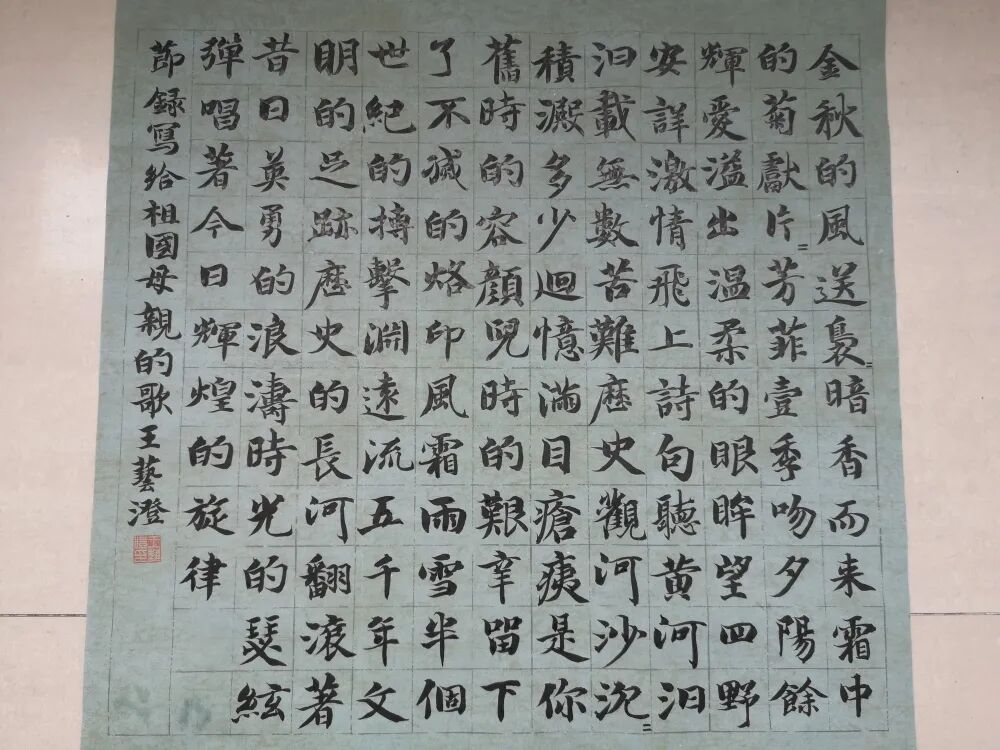 金秋的風送裊〻暗香而来霜中
的菊獻片〻芳菲壹季吻夕陽餘
輝愛溢出温柔的眼眸望四野
安詳激情飛上詩句聽黄河汩
汩載無數苦難歷史觀河沙沈〻
積澱多少迴憶滿目瘡痍是你
舊時的容顔兒時的艱辛留下
了不滅的烙印風霜雨雪半個
世紀的搏擊淵遠流五千年文
明的足跡歷史的長河翻滚著
昔日英勇的浪濤時光的瑟絃
彈唱著今日輝煌的旋律
節録寫給祖國母親的歌王藝澄